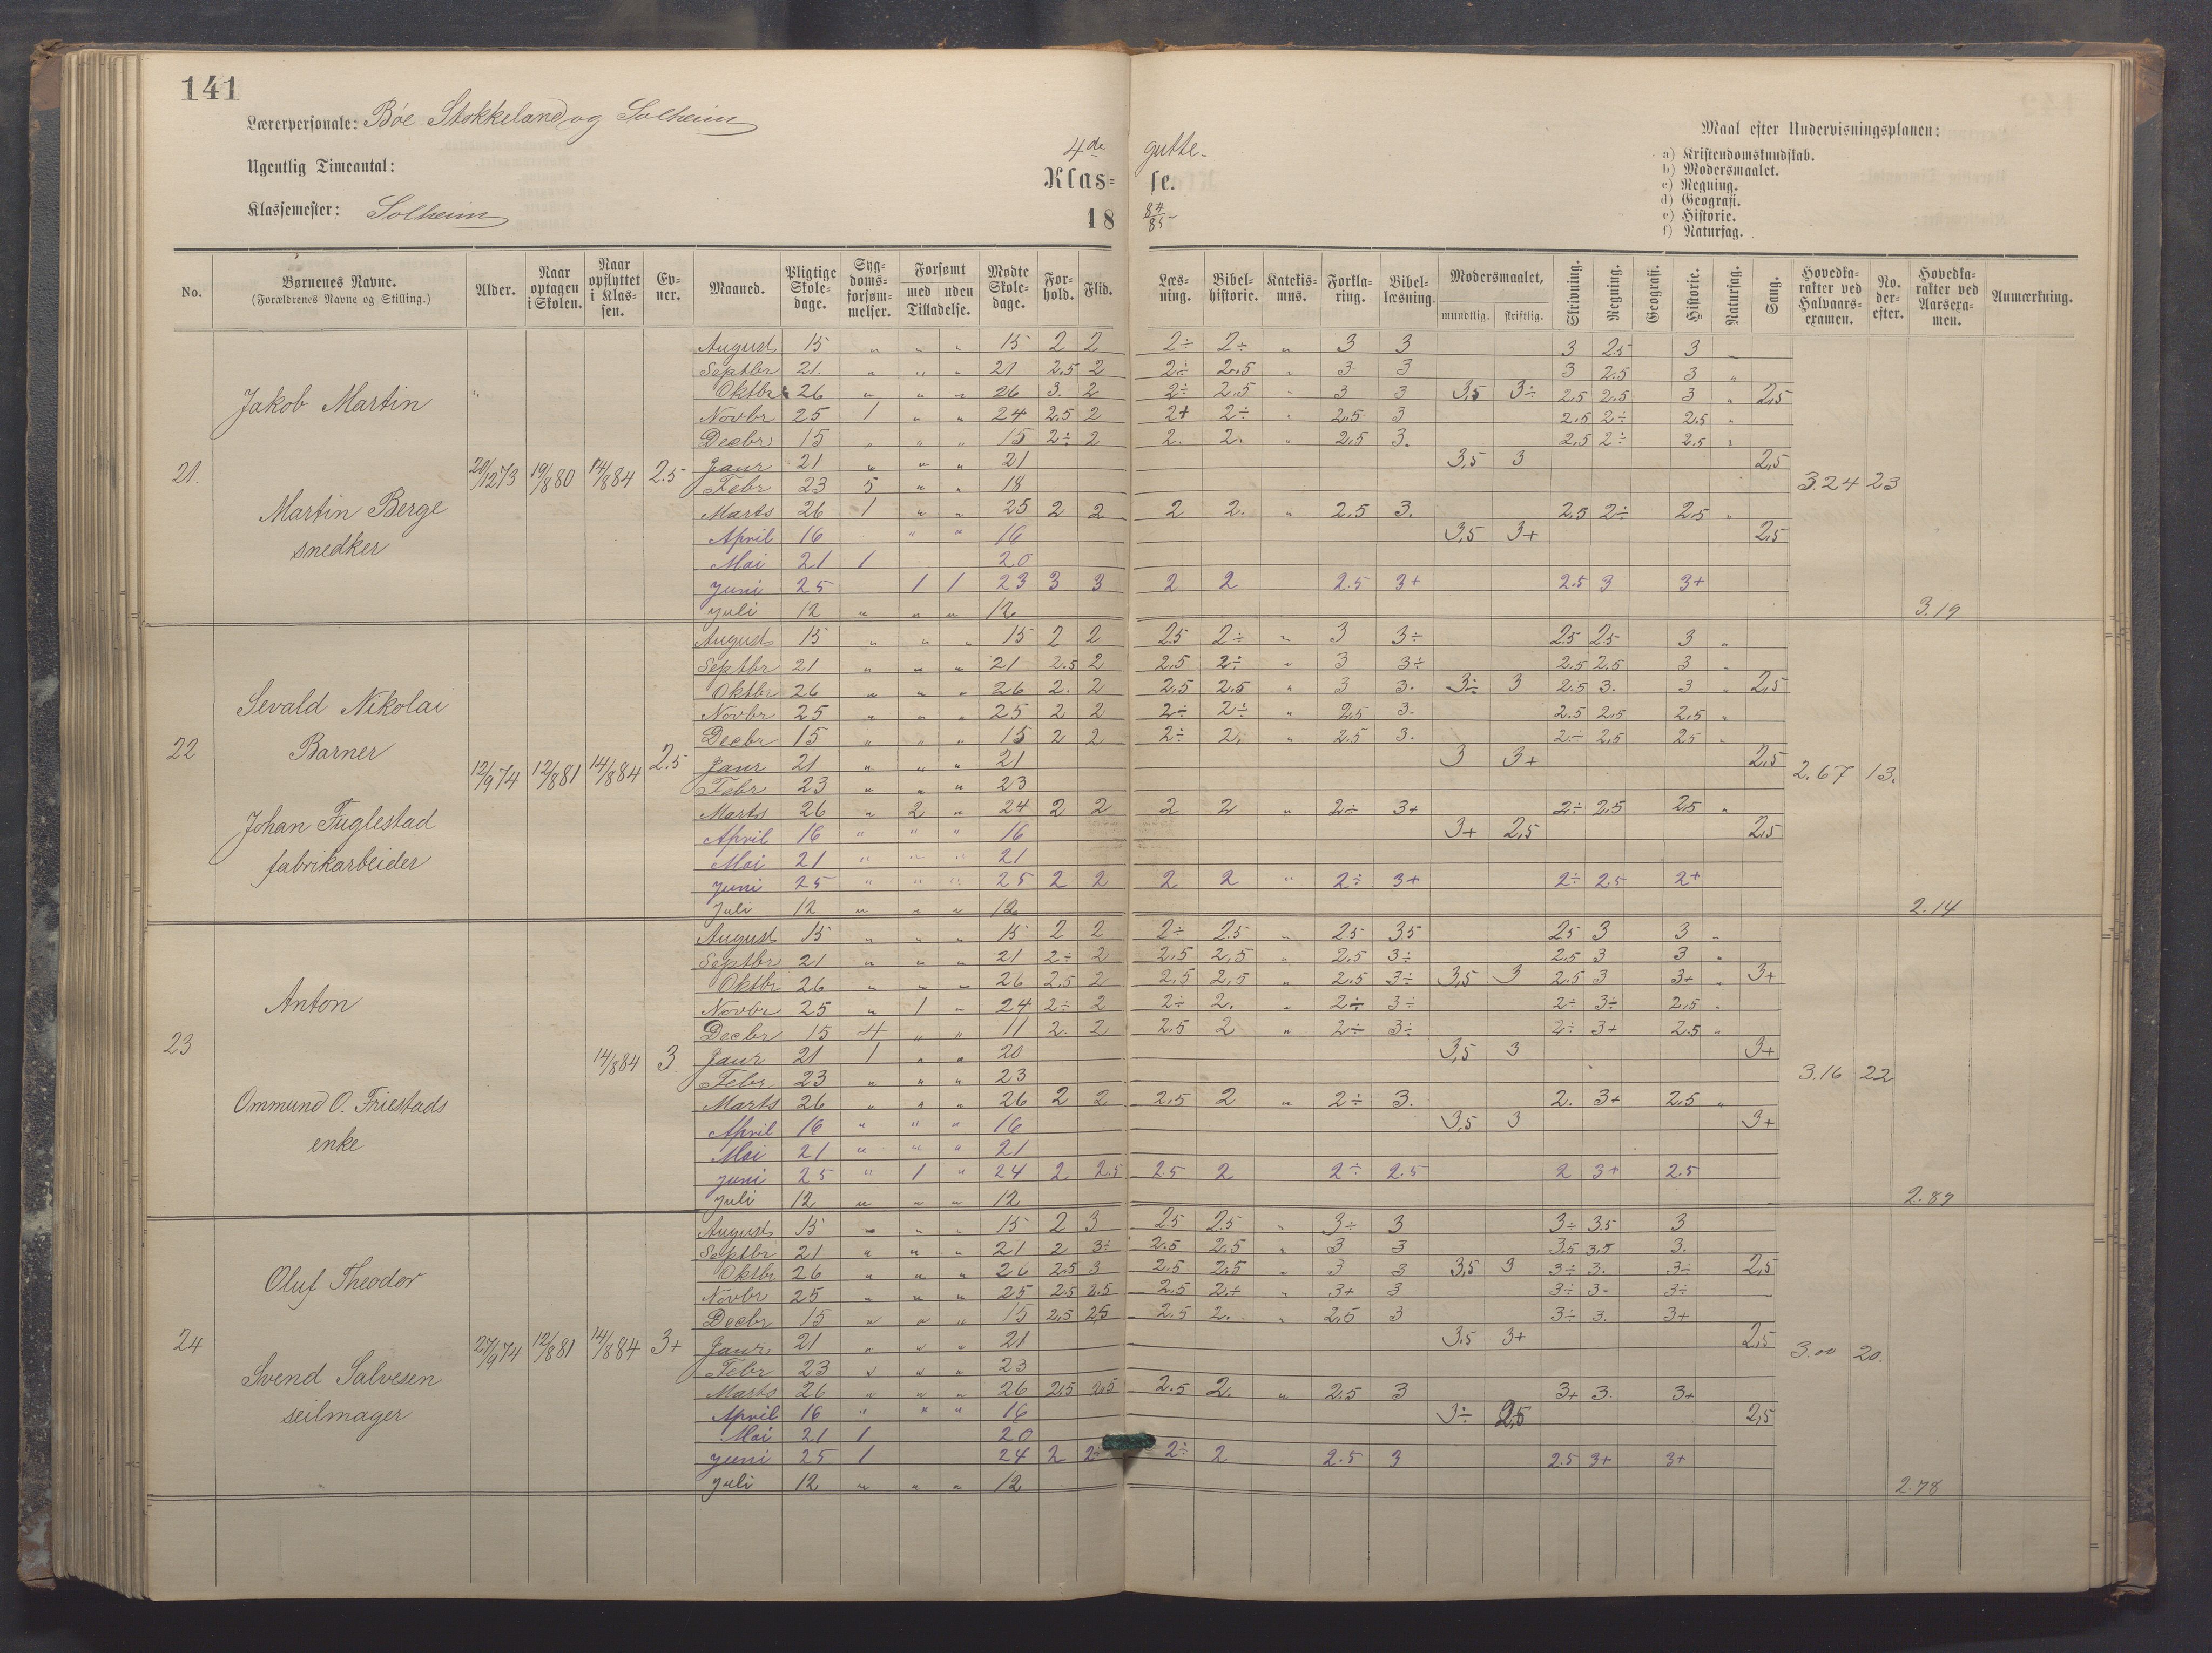 141
Lærerpersonale: Bøe Stokkeland og Solheim
Ugentlig Timeantal:
Klassemester: Solheim
4de gutte-
Klas- se.
18 84/85
Maal efter Undervisningsplanen:
a) Kristendomskundskab.
b) Modersmaalet.
c) Regning.
d) Geografi.
e) Historie.
f) Naturfag.
No. | Børnenes Navne. (Forældrenes Navne og Stilling.) | Alder. | Naar optagen i Skolen. | Naar opflyttet i Klassen. | Evner. | Maaned. | Pligtige Skoledage. | Sygdomsforsømmelser. | Forsømt med uden Tilladelse. | Mødte Skoledage. | Forhold. | Flid. | Læsning. | Bibelhistorie. | Katekismus. | Forklaring. | Bibellæsning. | Modersmaalet, mundtlig. skriftlig. | Skrivning. | Regning. | Geografi. | Historie. | Naturfag. | Sang. | Hovedkarakter ved Halvaarsexamen. | No. derefter. | Hovedkarakter ved Aarsexamen. | Anmærkning.
21. Jakob Martin
Martin Berge
snedker
20/12 73 19/8 80 14/8 84 2.5
August 15 " " " 15 2 2 2÷ 2÷ " 3 3 3 2.5 3 "
Septbr 21. " " " 21 2,5 2 2÷ 2,5 " 3 3 3 2.5 3 "
Oktbr 26 " " " 26 3. 2 2÷ 2.5 " 3 3 3,5 3÷ 2,5 2,5 3 " 2,5
Novbr 25 1 " " 24 2.5 2 2+ 2÷ " 2,5 3 2,5 2÷ 2,5 "
Decbr 15 " " " 15 2÷ 2 2. 2. " 2,5 3. 2,5 2÷ 2,5 "
Janr 21 " " " 21 3,5 3 2,5
Febr 23 5 " " 18 3.24 23
Marts 26 1 " " 25 2 2 2 2. " 2.5 3. 2.5 2÷ 2,5 "
April 16 " " 16 3,5 3+ 2,5
Mai 21 1 20
Juni 25 1 1 23 3 3 2 2 2.5 3+ 2.5 3 3+
Juli 12 " " " 12 3.19
22 Sevald Nikolai
Barner
Johan Fuglestad
fabrikarbeider
12/9 74 12/8 81 14/8 84 2.5
August 15 " " " 15 2 2 2.5 2÷ " 3 3÷ 2.5 2.5 3 "
Septbr 21 " " " 21 2.5 2 2,5 2÷ " 3 3÷ 2.5 2.5 3 "
Oktbr 26 " " " 26 2. 2 2,5 2,5 " 3 3. 3÷ 3 2.5 3. 3 " 2,5
Novbr 25 " " " 25 2 2 2÷ 2÷ " 2,5 3. 2.5 2,5 2,5 "
Decbr 15 " " " 15 2 2 2÷ 2. " 2,5 3. 2÷ 2,5 25 "
Janr 21 " " " 21 3 3+ 2,5
Febr 23 " " " 23 2.67 13.
Marts 26 " 2 " 24 2 2 2 2 " 2÷ 3+ 2÷ 2.5 2,5 "
April 16 " " " 16 3+ 2,5 2,5
Mai 21 " " " 21
Juni 25 " " " 25 2 2 2 2 " 2÷ 3+ 2÷ 2.5 2+
Juli 12 " " " 12 2.14
23 Anton
Ommund O. Friestads
enke
14/8 84 3.
August 15 " " " 15 2 2 2÷ 2.5 " 2.5 3.5 2.5 3 3 "
Septbr 21 " " " 21 2÷ 2 2,5 2,5 " 2,5 3÷ 2,5 3 3 "
Oktbr 26 " " " 26 2,5 2 2,5 2,5 " 2.5 3÷ 3,5 3 2.5 3 3+ " 3+
Novbr 25 " 1 " 24 2÷ 2 2÷ 2. " 2÷ 3÷ 2÷ 3÷ 2,5 "
Decbr 15 4 " " 11 2. 2 2.5 2 " 2÷ 3÷ 2÷ 3+ 2.5 "
Janr 21 1 " " 20 3,5 3 3+
Febr 23 " " " 23 3.16 22
Marts 26 " " " 26 2 2 2,5 2 " 2÷ 3. 2. 3+ 2,5 "
April 16 " " " 16 3,5 3 3+
Mai 21 " " " 21
Juni 25 " 1 " 24 2 2.5 2.5 2 2÷ 2.5 2 3+ 2.5
Juli 12 " " " 12 2.89
24 Oluf Theodor
Svend Salvesen
seilmager
27/9 74 12/8 81 14/8 84 3+
August 15 " " " 15 2 3 2.5 2.5 " 3÷ 3 3÷ 3.5 3
Septbr 21 " " " 21 2 3÷ 2.5 2.5 " 3 3 3,5 3,5 3.
Oktbr 26 " " " 26 2,5 3 2.5 2.5 " 3 3 3,5 3 3÷ 3. 3÷ 2,5
Novbr 25 " " " 25 2.5 2.5 2.5 2÷ " 3+ 3 3÷ 3- 3÷
Decbr 15 " " " 15 2,5 2,5 2.5 2. " 2,5 3 3÷ 3. 3+
Janr 21 " " " 21 3.5 3+ 2,5
Febr 23 " " " 23 3.00 20.
Marts 26 " " " 26 2,5 2,5 2.5 2. " 2.5 3 3+ 3. 3+
April 16 " " " 16 3÷ 2,5 2,5
Mai 21 1 20
Juni 25 1 24 2 2÷ 2÷ 2 2.5 3 2.5 3+ 3+
Juli 12 " " " 12 2.78